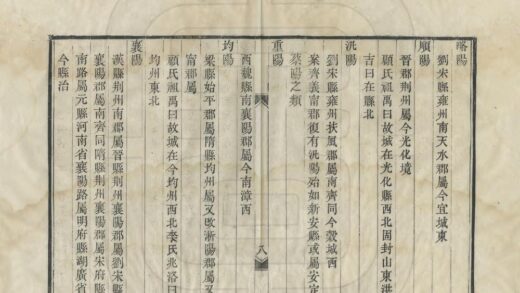 略陽
劉宋縣雍州南天水郡屬今宜城東
順陽
晉郡荊州屬今光化境
顧氏祖禹曰故城在光化縣西北固封山東洪
吉曰在縣北
汎陽
劉宋縣雍州扶風郡屬南齊同今穀城西
案齊義甯郡復有汎陽殆如新安縣或屬安定
蔡陽之類
重陽
西魏縣南襄陽郡屬今南漳西
八
均陽
梁縣始平郡屬隋縣均州屬又改淅陽郡屬又
甯郡屬
顧氏祖禹曰故城在今均州西北李氏兆洛曰
均州東北
襄陽
漢縣荊州南郡屬晉縣荊州襄陽郡屬劉宋縣
襄陽郡屬南齊同隋縣荊州襄陽郡屬宋府縣
南路屬元縣河南省襄陽路屬明府縣湖廣省
今縣治